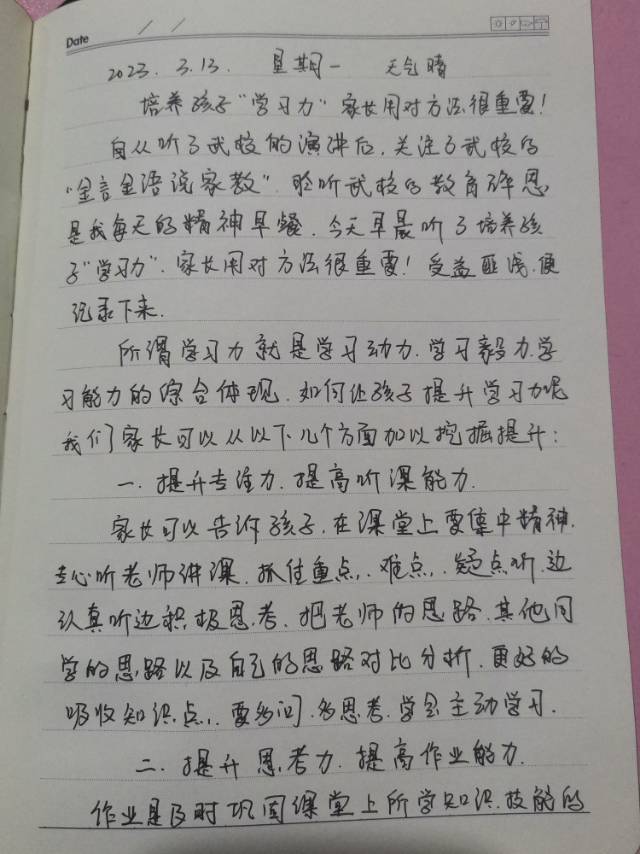 Date / /
2023. 3.13. 星期一 天气晴
培养孩子"学习力"家长用对方法很重要!
自从听了武校的演讲后,关注了武校的
"金言金语说家教",聆听武校的教育
是我每天的精神早餐.今天早晨听了培养孩
子"学习力",家长用对方法很重要!受益匪浅,便
记录下来.
所谓学习力就是学习动力.学习毅力.学
习能力的综合体现.如何让孩子提升学习力呢
我们家长可以从以下几个方面加以挖掘提升:
一.提升专注力.提高听课能力.
家长可以告诉孩子,在课堂上要集中精神.
专心听老师讲课.抓住重点、难点、疑点听.边
认真听边积极思考.把老师的思路.其他同
学的思路以及自己的思路对比分析.更好的
吸收知识点,要多问.多思考.学会主动学习.
二.提升思考力.提高作业能力.
作业是及时巩固课堂上所学知识.技能的